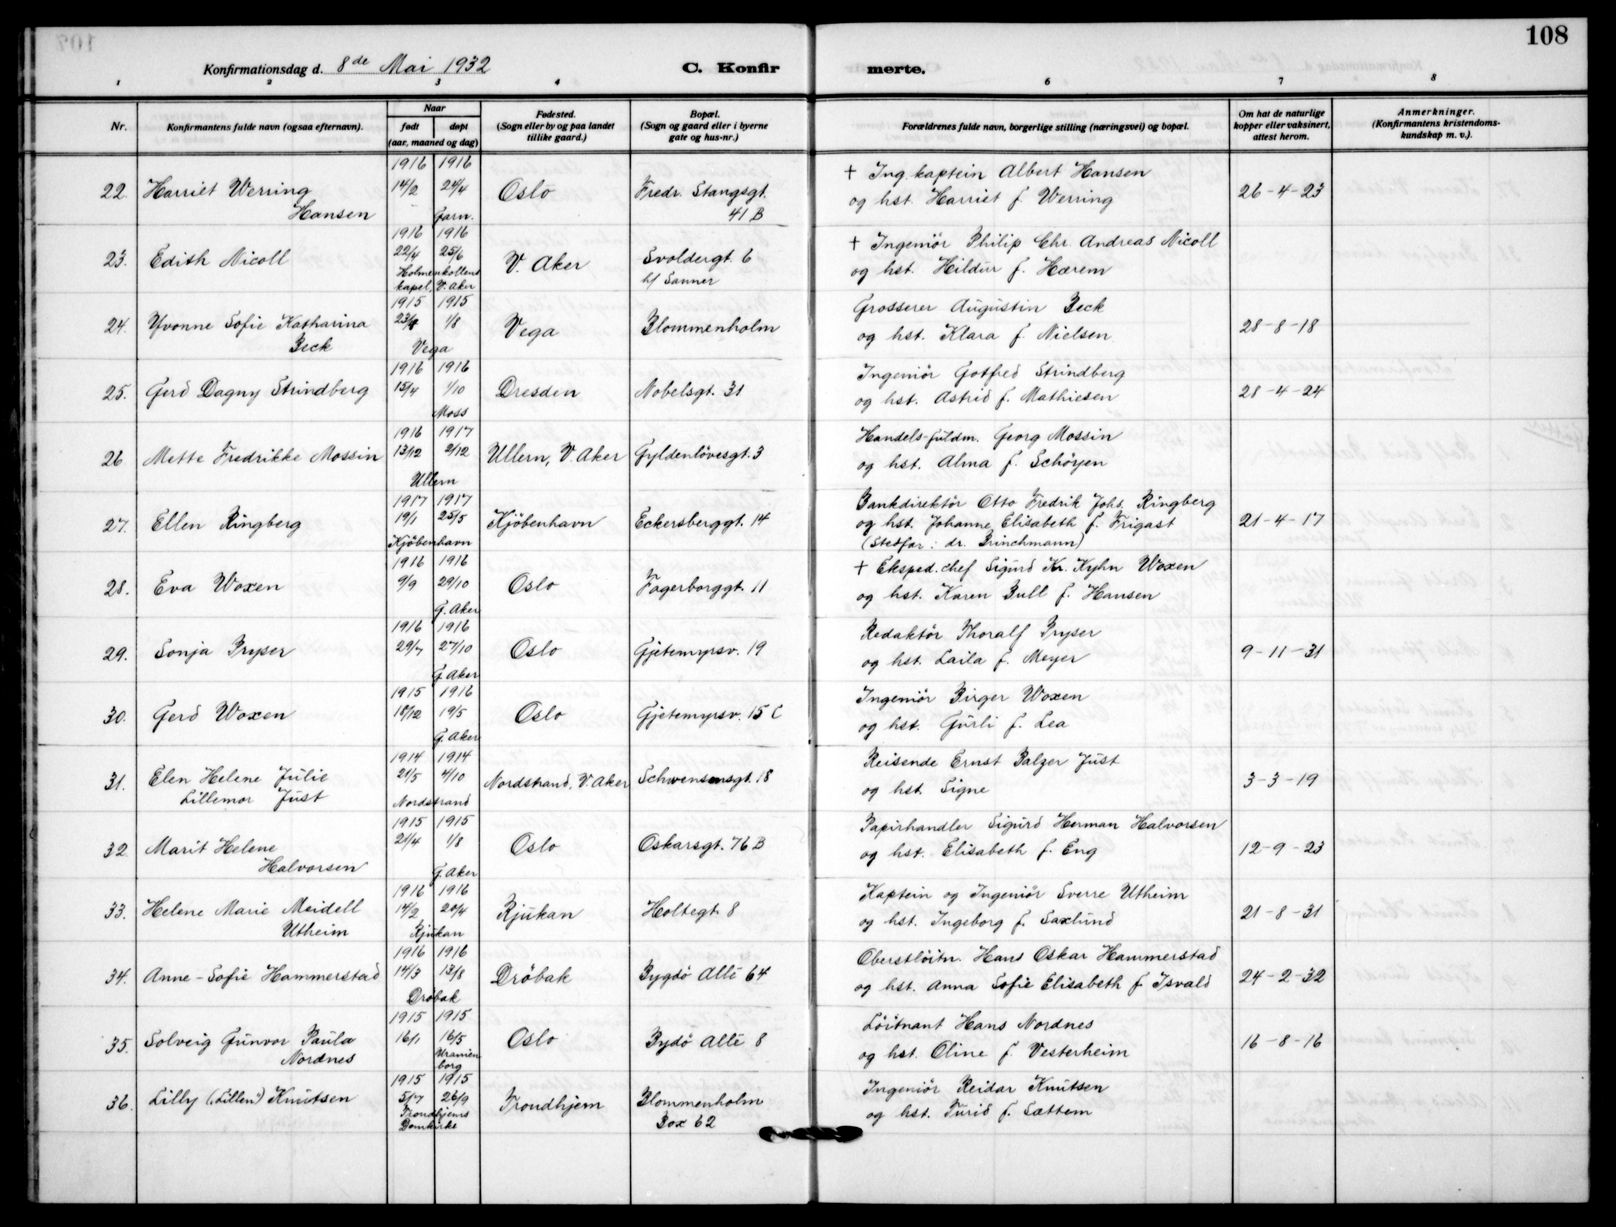 108
Konfirmationsdag d. 8de Mai 1932 C. Konfirmerte.
1 2 3 4 6 7 8
Nr. Konfirmantens fulde navn (ogsaa efternavn). Naar født døpt (aar, maaned og dag) Fødested. (Sogn eller by og paa landet tillike gaard.) Bopæl. (Sogn og gaard eller i byerne gate og hus-nr.) Forældrenes fulde navn, borgerlige stilling (næringsvei) og bopæl. Om hat de naturlige kopper eller vaksinert, attest herom. Anmerkninger. (Konfirmantens kristendomskundskap m. v.).
1916 1916 † Ing. kaptein Albert Hansen
22. Harriet Werring 14/2 24/4 Oslo Fredr. Stangsgt. og hst. Harriet f. Werring 26-4-23
Hansen Garn. 41 B
1916 1916 † Ingeniör Philip Chr. Andreas Nicoll
23. Edith Nicoll 22/4 25/6 V. Aker Svoldergt. 6 og hst. Hildur f. Hærem
Holmenkollens b/ Sanner
kapel, V. Aker
1915 1915 Grosserer Augustin Beck
24. Yvonne Sofie Katharina 1/8 Vega Blommenholm og hst. Klara f. Nielsen 28-8-18
Beck Vega
1916 1916 Ingeniör Gotfred Strindberg
25. Gerd Dagny Strindberg 15/4 1/10 Dresden Nobelsgt. 31 og hst. Astrid f. Mathiesen 28-4-24
Moss
1916 1917 Handels-fuldm. Georg Mossin
26 Mette Fredrikke Mossin 13/12 2/12 Ullern, V. Aker Gyldenlövesgt. 3 og hst. Alma f. Schöyen
Ullern
1917 1917 Bankdirektör Otto Fredrik Johs. Ringberg
27. Ellen Ringberg 19/1 25/5 Kjöbenhavn Eckersberggt. 14 og hst. Johanne Elisabeth f. Frigast 21-4-17
Kjöbenhavn (Stedfar: dr. Brinchmann)
1916 1916 † Eksped. chef Sigurd Kr. Kyhn Woxen
28. Eva Woxen 9/9 29/10 Oslo Fagerborggt. 11 og hst. Karen Bull f. Hansen
G. Aker
1916 1916 Redaktör Thoralf Pryser
29. Sonja Pryser 29/7 27/10 Oslo Gjetemyrsv. 19 og hst. Laila f. Meyer 9-11-31
G. Aker
1915 1916 Ingeniör Birger Woxen
30. Gerd Woxen 18/12 19/5 Oslo Gjetemyrsv. 15 C og hst. Gurli f. Lea
G. Aker
1914 1914 Reisende Ernst Balzer Just
31. Elen Helene Julie 21/5 4/10 Nordstrand, V. Aker Schwensensgt. 18 og hst. Signe 3-3-19
Lillemor Just Nordstrand
1915 1915 Papirhandler Sigurd Herman Halvorsen
32 Marit Helene 21/4 1/8 Oslo Oskarsgt. 76 B og hst. Elisabeth f. Eng 12-9-23
Halvorsen G. Aker
1916 1916 Kaptein og Ingeniör Sverre Utheim
33. Helene Marie Meidell 14/2 20/4 Rjukan Holtegt. 8 og hst. Ingeborg f. Saxlund 21-8-31
Utheim Rjukan
1916 1916 Oberstlöitn. Hans Oskar Hammerstad
34. Anne-Sofie Hammerstad 14/3 13/8 Dröbak Bygdö Allé 64 og hst. Anna Sofie Elisabeth f. Isvald 24-2-32
Dröbak
1915 1915 Löitnant Hans Nordnes
35. Solveig Gunvor Paula 16/1 16/5 Oslo Bydö Allé 8 og hst. Oline f. Vesterheim 16-8-16
Nordnes Uranienborg
1915 1915 Ingeniör Reidar Knutsen
36. Lilly ("Lillen") Knutsen 5/7 26/9 Trondhjem Blommenholm og hst. Turid f. Sættem
Trondhjems Box 62
Domkirke